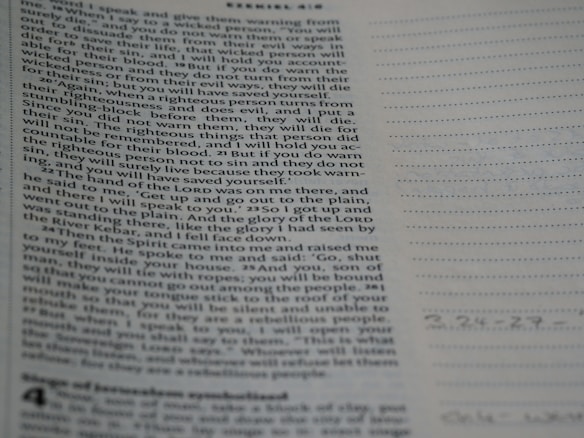 EZEKIEL 4:6
me. word I speak and give them warning from
18 When I say to a wicked person, "You will
surely die," and you do not warn them or speak
out to dissuade them from their evil ways in
order to save their life, that wicked person will
die for their sin, and I will hold you account-
able for their blood. 19 But if you do warn the
wicked person and they do not turn from their
wickedness or from their evil ways, they will die
for their sin; but you will have saved yourself.
20 'Again, when a righteous person turns from
their righteousness and does evil, and I put a
stumbling-block before them, they will die.
Since you did not warn them, they will die for
their sin. The righteous things that person did
will not be remembered, and I will hold you ac-
countable for their blood. 21 But if you do warn
the righteous person not to sin and they do not
sin, they will surely live because they took warn-
ing, and you will have saved yourself.'
22 The hand of the LORD was on me there, and
he said to me, 'Get up and go out to the plain,
and there I will speak to you.' 23 So I got up and
went out to the plain. And the glory of the LORD
was standing there, like the glory I had seen by
the River Kebar, and I fell face down.
24 Then the Spirit came into me and raised me
to my feet. He spoke to me and said: 'Go, shut
yourself inside your house. 25 And you, son of
man, they will tie with ropes; you will be bound
so that you cannot go out among the people. 26 I
will make your tongue stick to the roof of your
mouth so that you will be silent and unable to
rebuke them, for they are a rebellious people.
27 But when I speak to you, I will open your
mouth and you shall say to them, "This is what
the Sovereign LORD says." Whoever will listen
let them listen, and whoever will refuse let them
refuse; for they are a rebellious people.
Siege of Jerusalem symbolised
4 'Now, son of man, take a block of clay, put
it in front of you and draw the city of Jeru-
salem on it. 2 Then lay siege to it: erect siege
works against
24-27 -